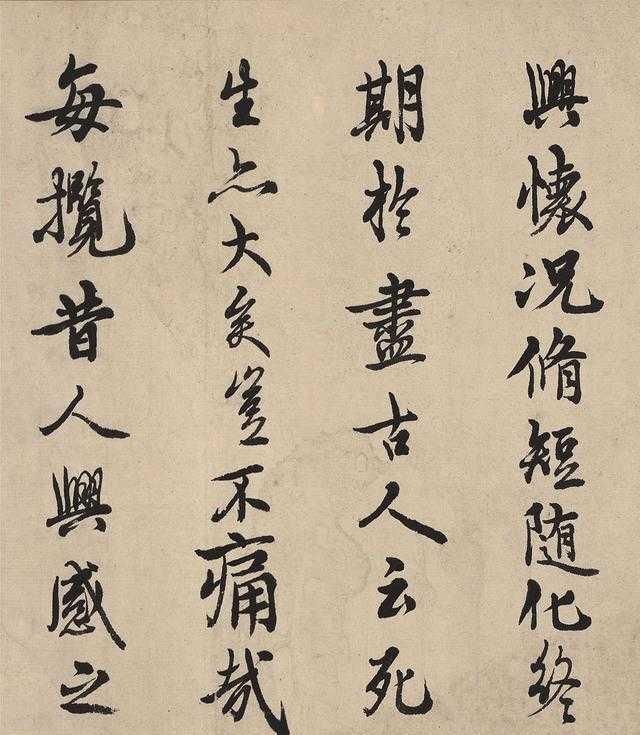 興懷况脩短随化終
期於盡古人云死
生亦大矣豈不痛哉
每攬昔人興感之